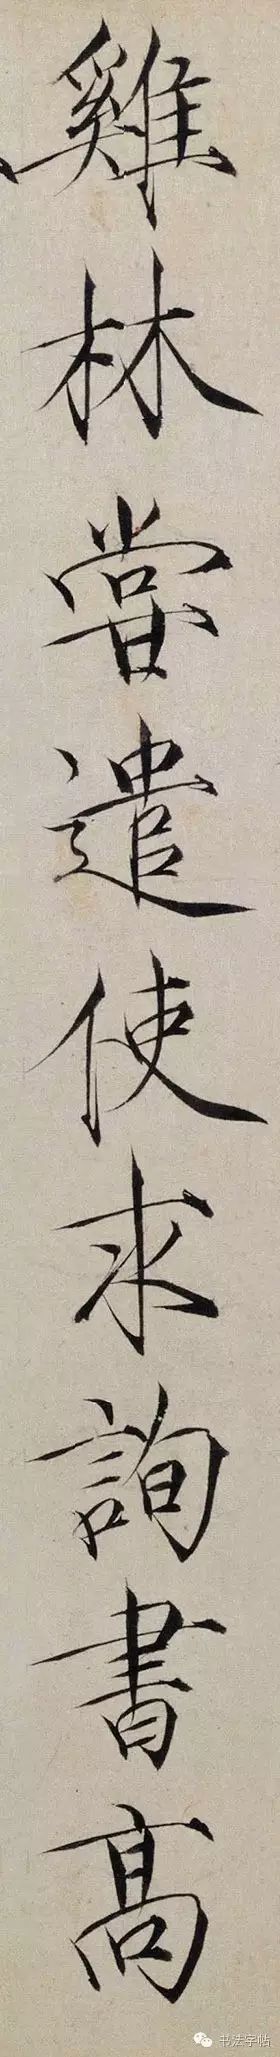 雞林嘗遣使求詢書高
书法字帖